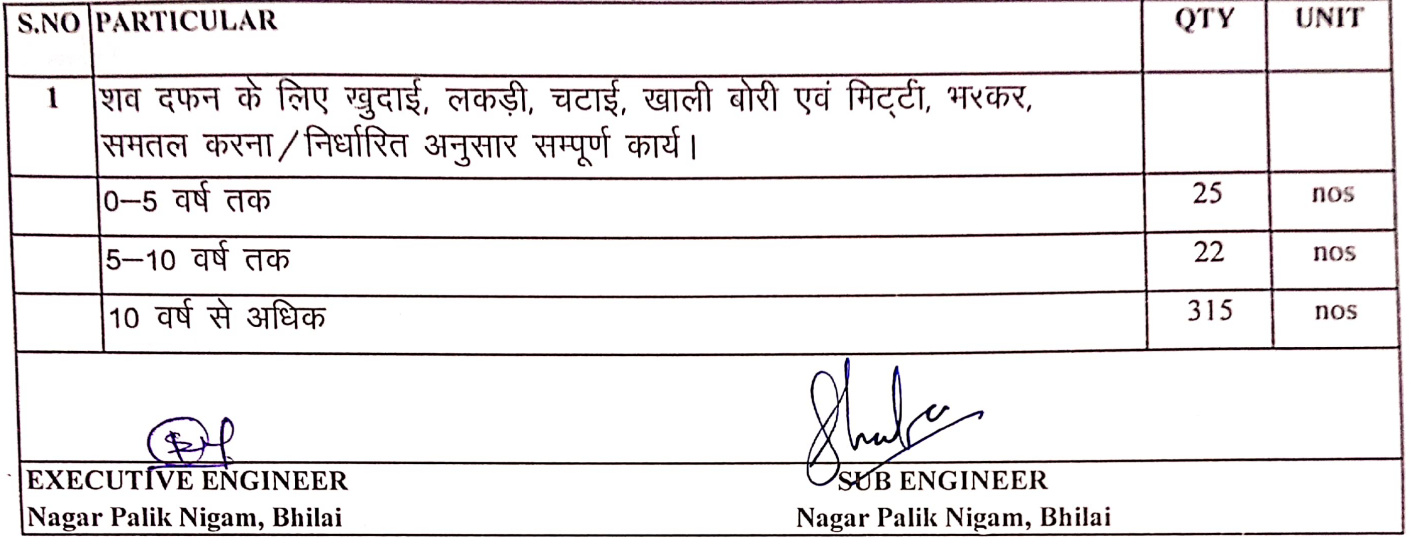 S.NO PARTICULAR QTY UNIT
1 शव दफन के लिए खुदाई, लकड़ी, चटाई, खाली बोरी एवं मिट्टी, भरकर,
समतल करना/निर्धारित अनुसार सम्पूर्ण कार्य।
0–5 वर्ष तक 25 nos
5–10 वर्ष तक 22 nos
10 वर्ष से अधिक 315 nos
EXECUTIVE ENGINEER SUB ENGINEER
Nagar Palik Nigam, Bhilai Nagar Palik Nigam, Bhilai